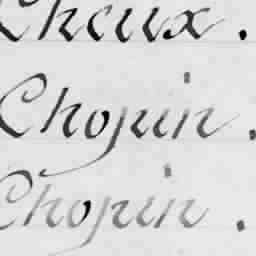 Cheux.
Chopin.
Chopin.